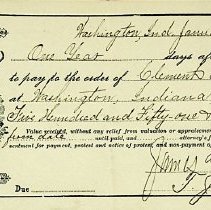 Washington, Ind. Janu
One Year days a
to pay to the order of Clement
at Washington, Indiana
Five Hundred and Fifty-one &
Value received, without any relief from valuation or appraisement
from date until paid, and attorney's
sentment for payment, protest and notice of protest and non-payment of
James
Due